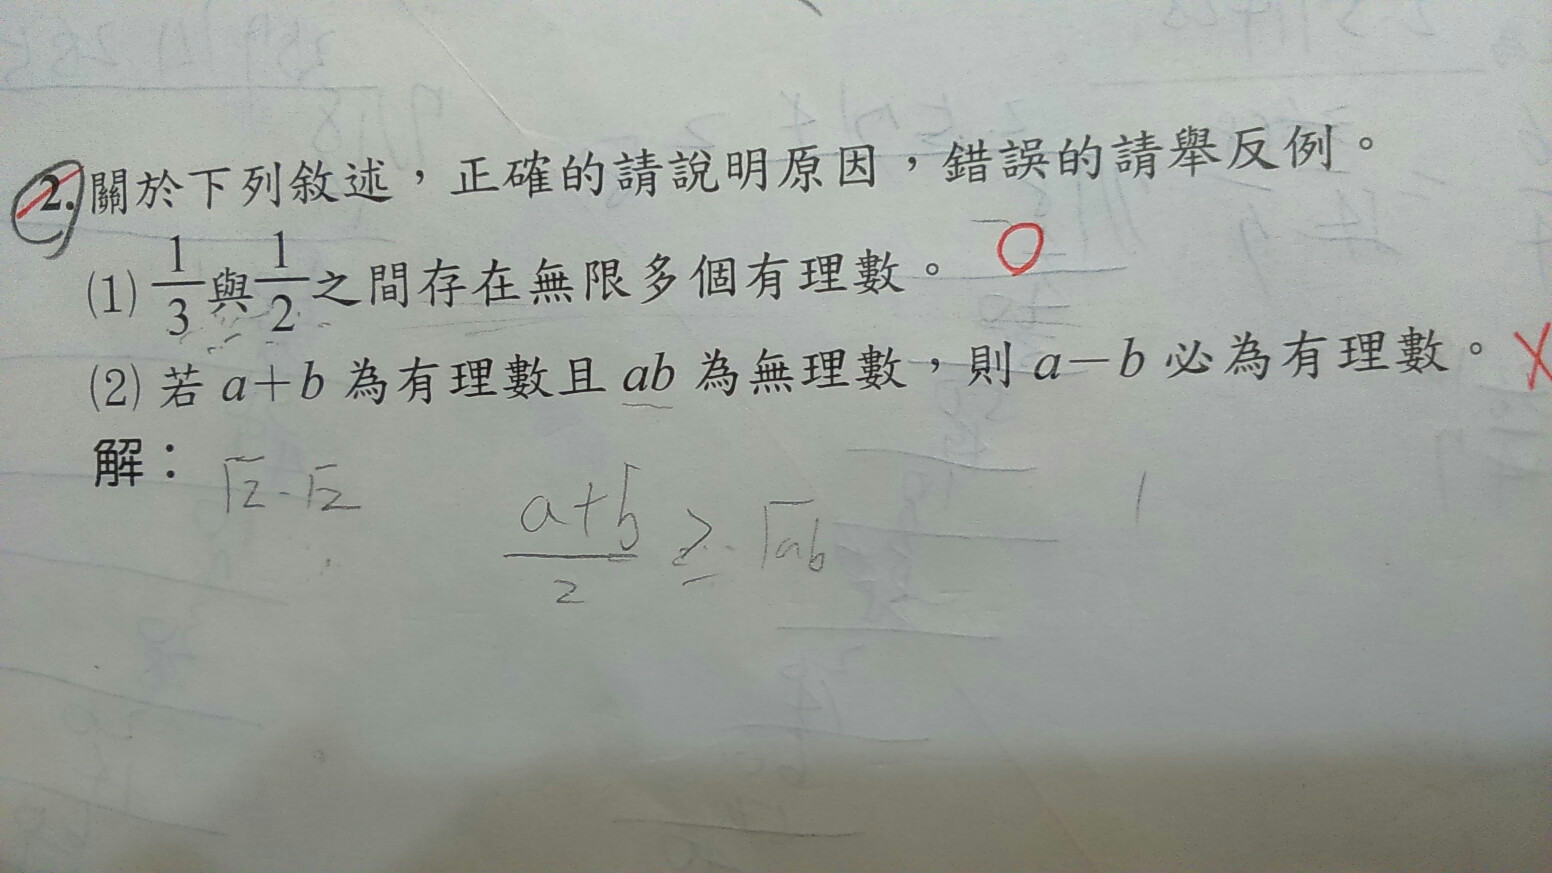 2. 關於下列敘述，正確的請說明原因，錯誤的請舉反例。
(1) 1/3 與 1/2 之間存在無限多個有理數。 O
(2) 若 a＋b 為有理數且 ab 為無理數，則 a－b 必為有理數。 X
解：
√2 - √2
(a+b)/2 ≥ √ab